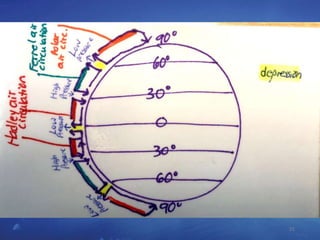 Ferrel air
circulation
Polar
air circ.
Hadley air
circulation
Low
Pressure
High
Pressure
Low
Pressure
High
Pressure
Low
Pressure
90°
60°
30°
0
30°
60°
90°
depression